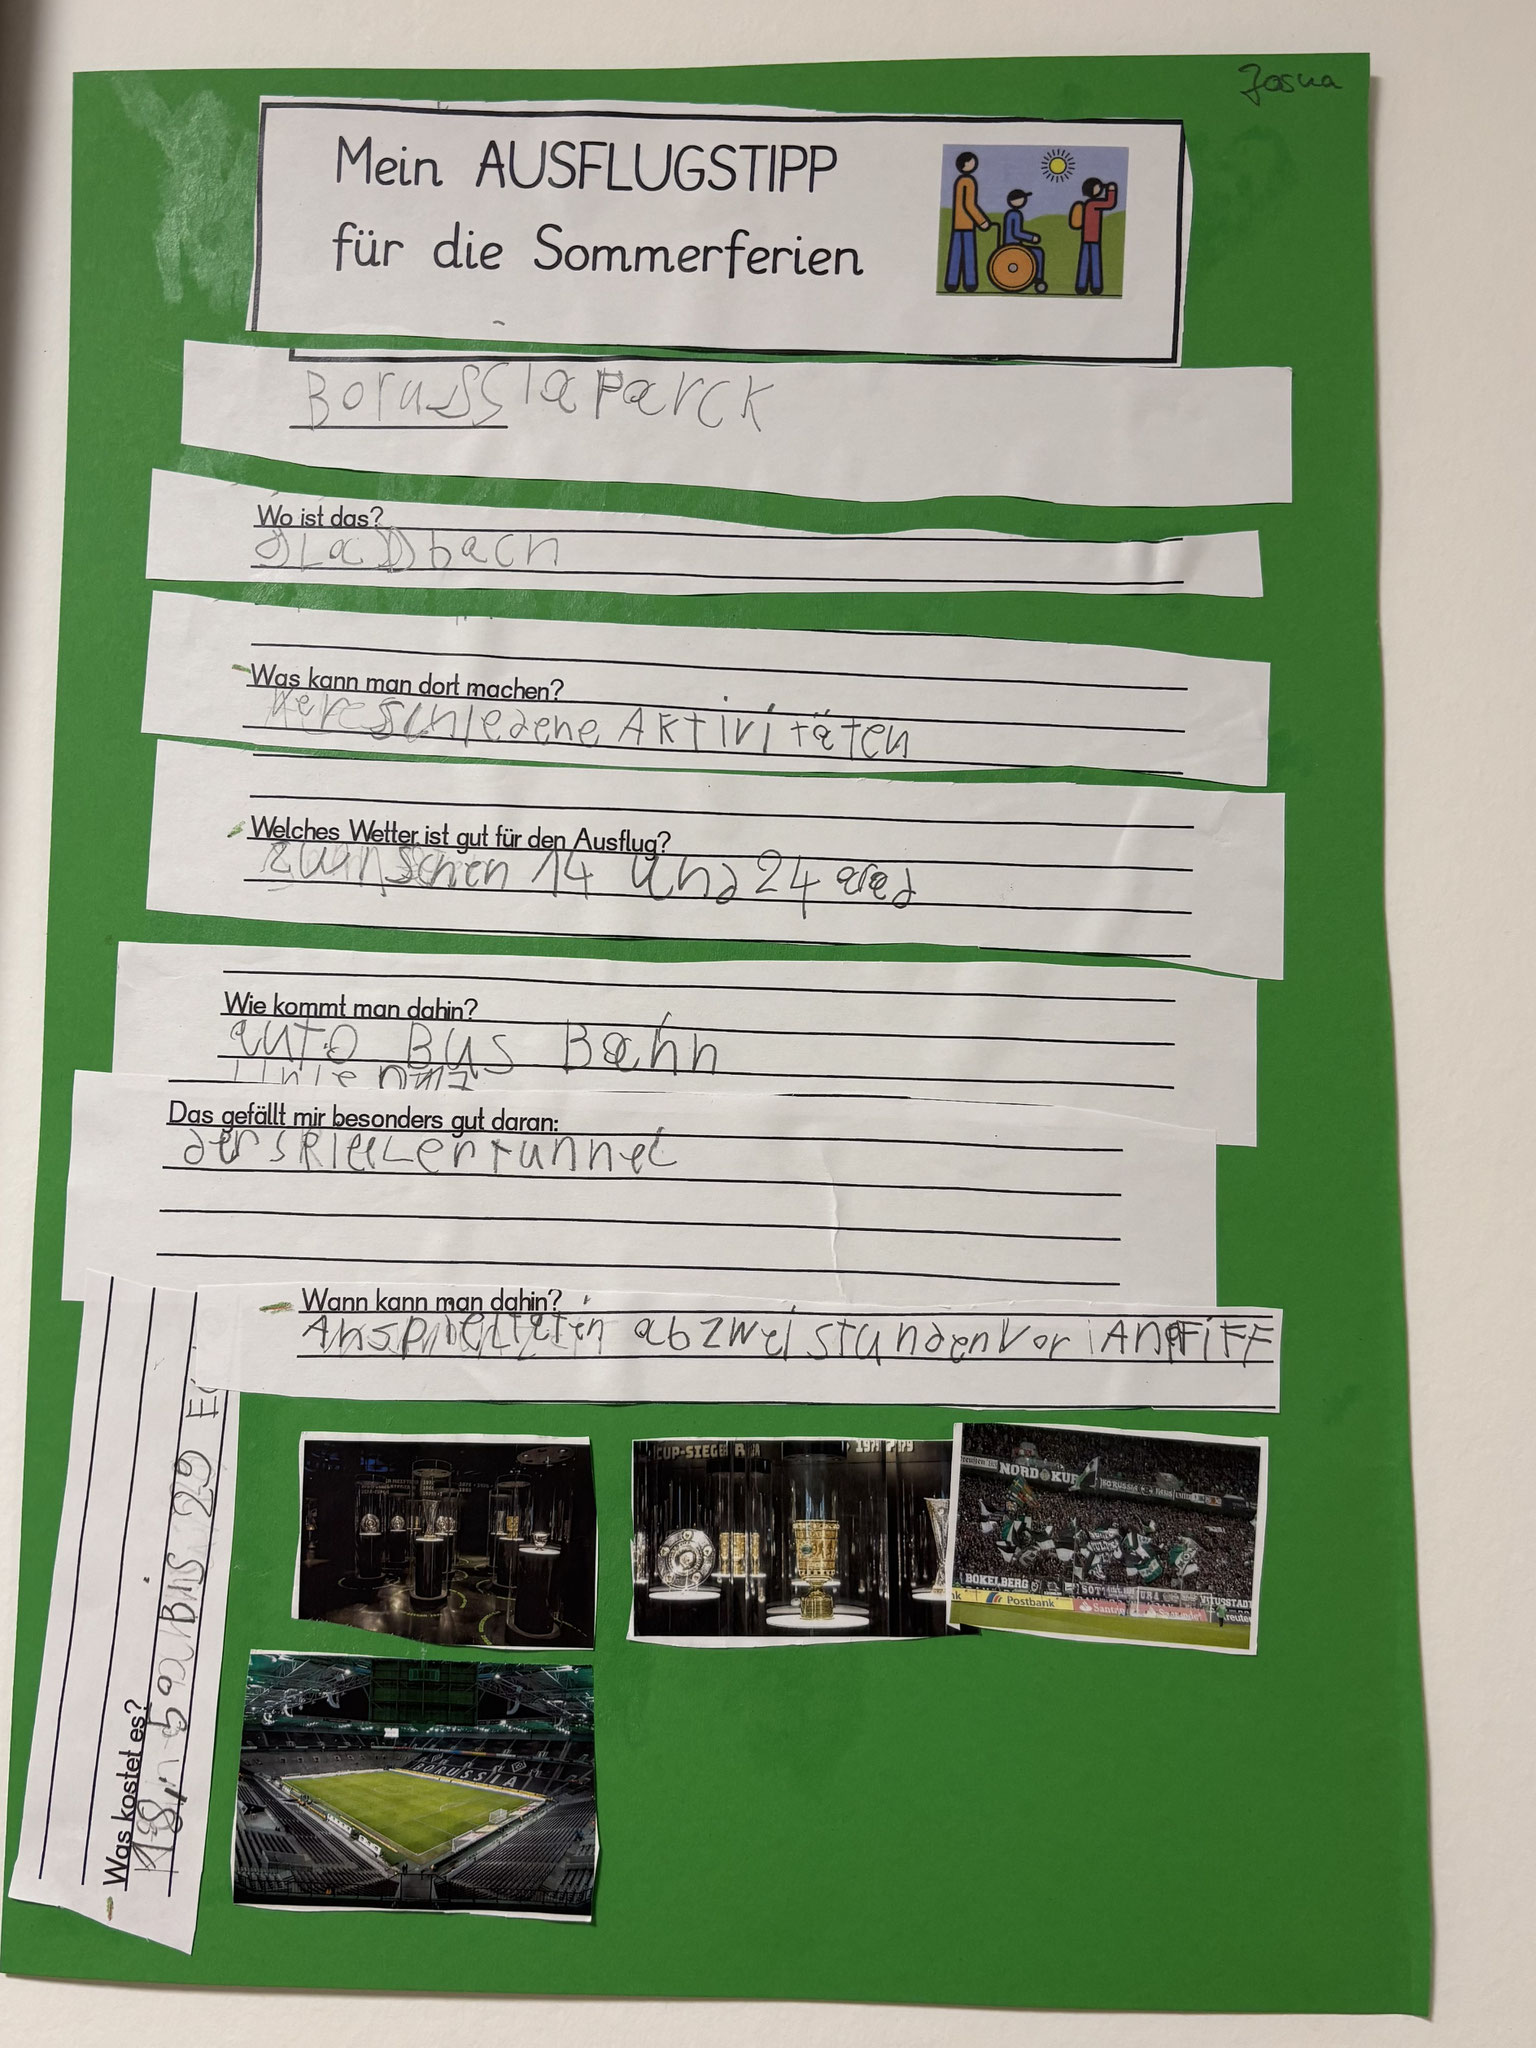 Josua
Mein AUSFLUGSTIPP
für die Sommerferien
BorussiaParck
Wo ist das?
GLaDbach
Was kann man dort machen?
verschiedene AKtivitäten
Welches Wetter ist gut für den Ausflug?
zwinschen 14 und 24 Grad
Wie kommt man dahin?
auto Bus Bahn
Linie
Das gefällt mir besonders gut daran:
der spielertunnel
Wann kann man dahin?
An spieltaten ab zwei stunden vor ANPFiFF
Was kostet es?
29
CUP-SIEGER
NORDKURVE
BORUSSIA
BOKELBERG
Postbank
Santander
BORUSSIA